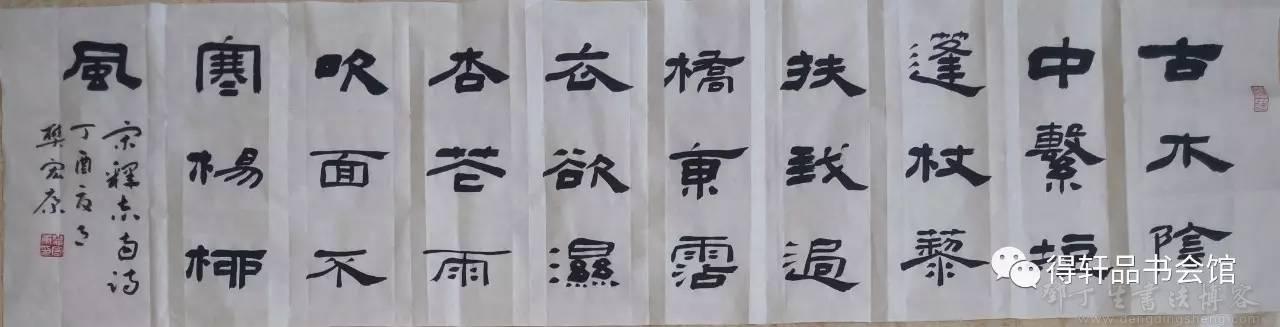 古木陰
中繫短
篷杖藜
扶我過
橋東霑
衣欲濕
杏花雨
吹面不
寒楊柳
風
宋釋志南詩
丁酉夏月
得轩品书会馆
鄧丁生書法博客
www.dengdingsheng.com